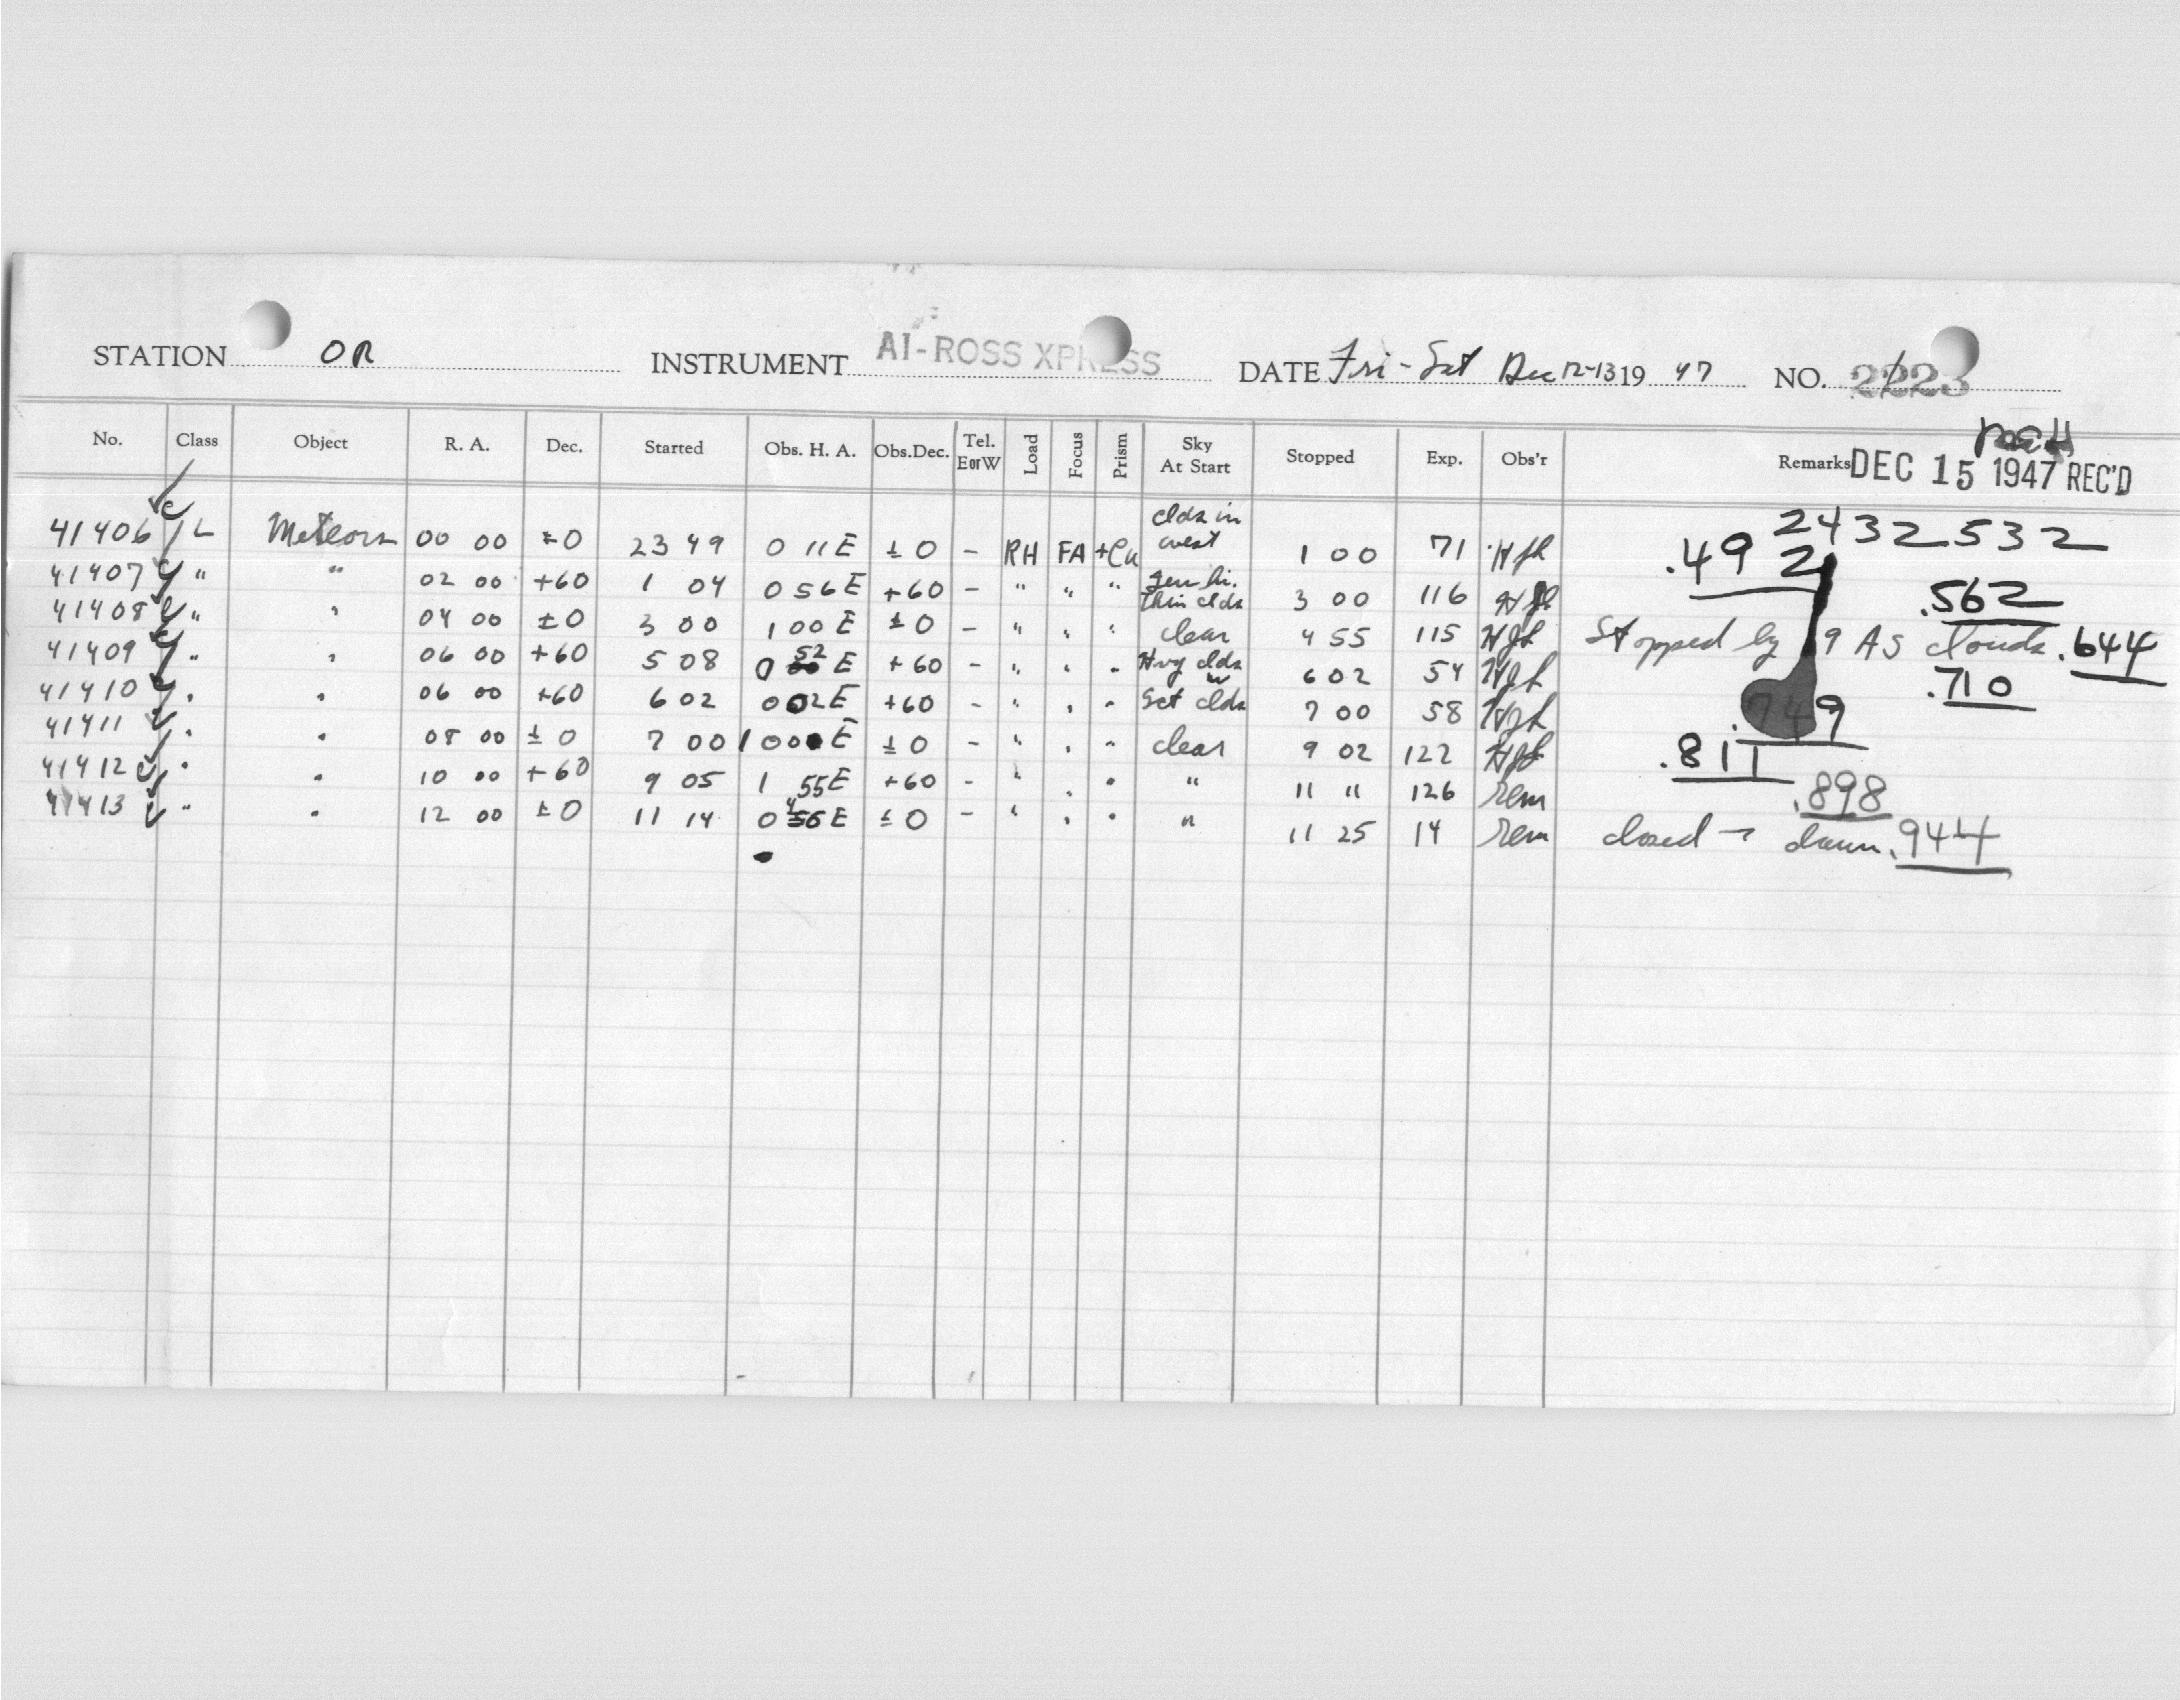 STATION OR INSTRUMENT AI-ROSS XPRESS DATE Fri-Sat Dec 12-13 19 47 NO. 2223
No. Class Object R. A. Dec. Started Obs. H. A. Obs.Dec. Tel. EorW Load Focus Prism Sky At Start Stopped Exp. Obs'r Remarks DEC 15 1947 REC'D
2432532
41406 L Meteors 00 00 ±0 23 49 0 11E ±0 - RH FA +Cu clds in west 1 00 71 HJh .492
41407 " " 02 00 +60 1 04 0 56E +60 - " " " Gen hi. thin clds 3 00 116 HJh .562
41408 " " 04 00 ±0 3 00 1 00E ±0 - " " " clear 4 55 115 HJh Stopped by 9 AS clouds .644
41409 " " 06 00 +60 5 08 0 52 E +60 - " " " Hvy clds W 6 02 54 HJh .710
41410 " " 06 00 +60 6 02 0 02E +60 - " " " Sct clds 7 00 58 HJh .749
41411 " " 08 00 ±0 7 00 1 00E ±0 - " " " clear 9 02 122 HJh .811
41412 " " 10 00 +60 9 05 1 55E +60 - " " " " 11 11 126 Rem .898
41413 " " 12 00 ±0 11 14 0 E ±0 - " " " " 11 25 14 Rem closed → dawn .944